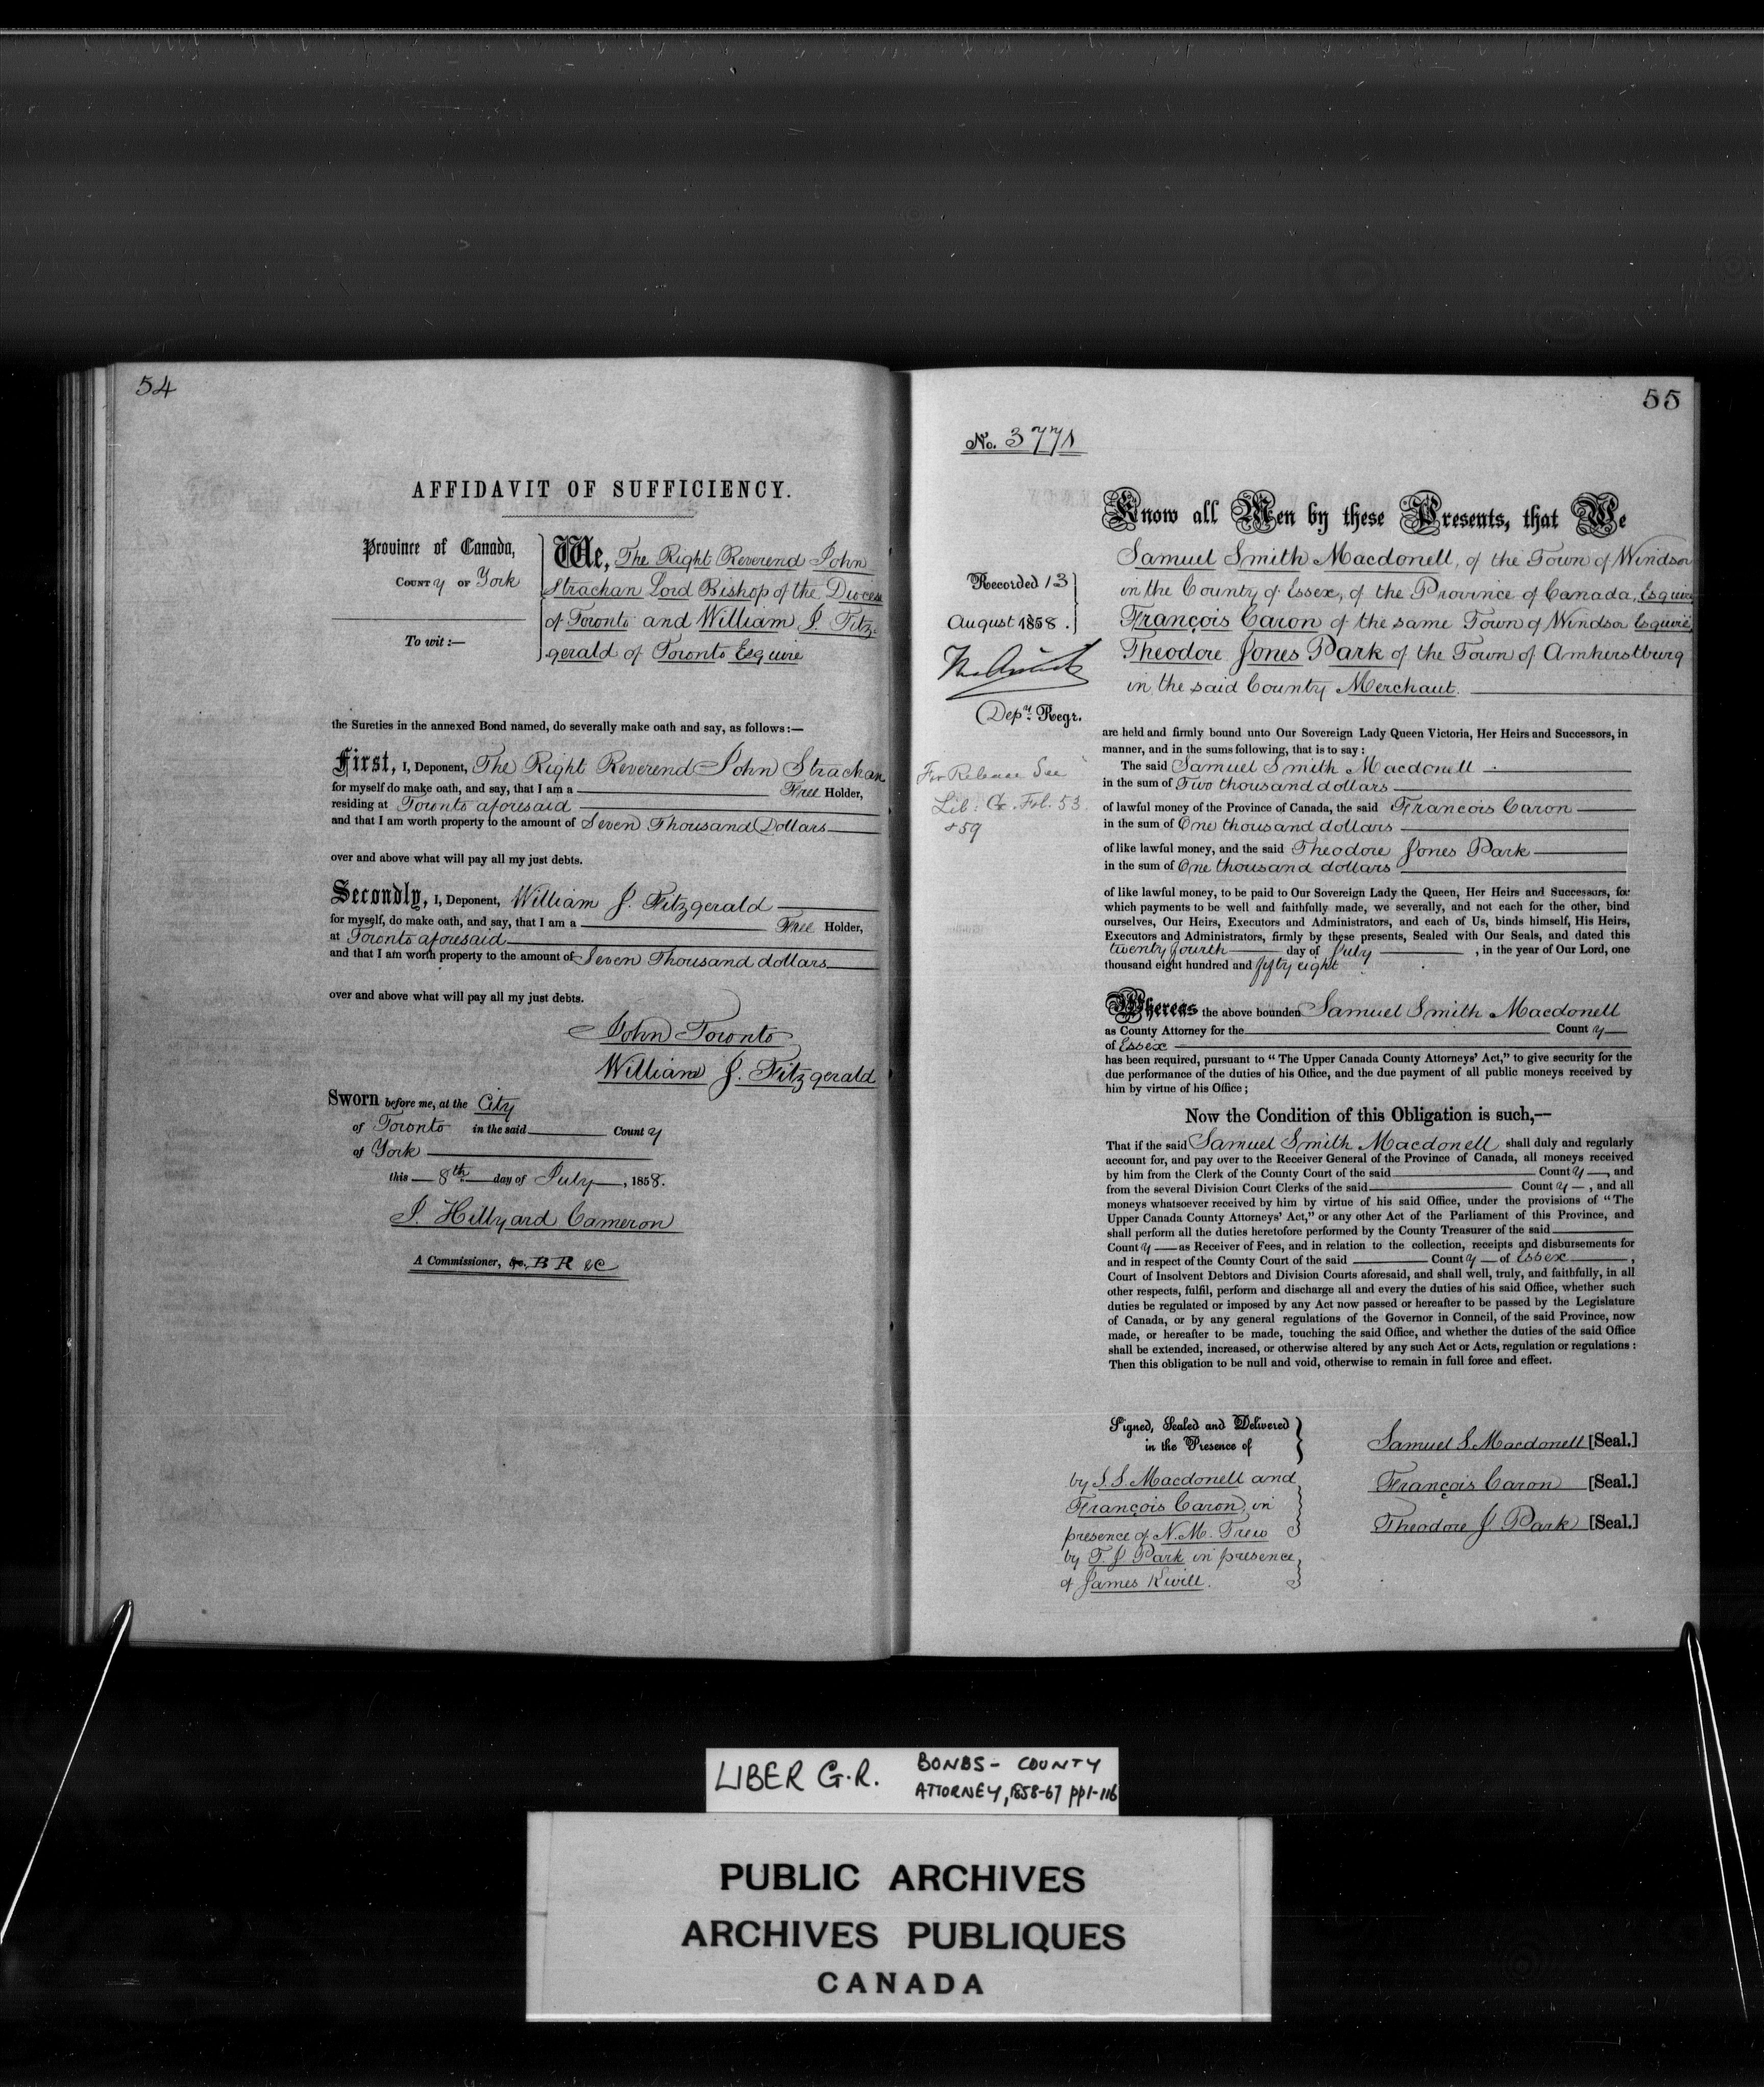 54
AFFIDAVIT OF SUFFICIENCY.
Province of Canada,
COUNTY OF York
To wit:—
We, The Right Reverend John
Strachan Lord Bishop of the Diocese
of Toronto and William J. Fitz-
gerald of Toronto Esquire
the Sureties in the annexed Bond named, do severally make oath and say, as follows:—
First, I, Deponent, The Right Reverend John Strachan
for myself do make oath, and say, that I am a Free Holder,
residing at Toronto aforesaid
and that I am worth property to the amount of Seven Thousand Dollars
over and above what will pay all my just debts.
Secondly, I, Deponent, William J. Fitzgerald
for myself, do make oath, and say, that I am a Free Holder,
at Toronto aforesaid
and that I am worth property to the amount of Seven Thousand dollars
over and above what will pay all my just debts.
John Toronto
William J. Fitzgerald
Sworn before me, at the City
of Toronto in the said County
of York
this 8th day of July, 1858.
J. Hillyard Cameron
A Commissioner, &c. B R &C
55
No. 3771
Recorded 13
August 1858.
Depy. Regr.
For Release See
Lib. G. Fol. 53
+59
Know all Men by these Presents, that We
Samuel Smith Macdonell, of the Town of Windsor
in the County of Essex, of the Province of Canada, Esquire
François Caron of the same Town of Windsor Esquire,
Theodore Jones Park of the Town of Amherstburg
in the said County Merchant.
are held and firmly bound unto Our Sovereign Lady Queen Victoria, Her Heirs and Successors, in
manner, and in the sums following, that is to say:
The said Samuel Smith Macdonell
in the sum of Two thousand dollars
of lawful money of the Province of Canada, the said Francois Caron
in the sum of One thousand dollars
of like lawful money, and the said Theodore Jones Park
in the sum of One thousand dollars
of like lawful money, to be paid to Our Sovereign Lady the Queen, Her Heirs and Successors, for
which payments to be well and faithfully made, we severally, and not each for the other, bind
ourselves, Our Heirs, Executors and Administrators, and each of Us, binds himself, His Heirs,
Executors and Administrators, firmly by these presents, Sealed with Our Seals, and dated this
twenty fourth day of July, in the year of Our Lord, one
thousand eight hundred and fifty eight
Whereas the above bounden Samuel Smith Macdonell
as County Attorney for the County
of Essex
has been required, pursuant to “The Upper Canada County Attorneys’ Act,” to give security for the
due performance of the duties of his Office, and the due payment of all public moneys received by
him by virtue of his Office;
Now the Condition of this Obligation is such,—
That if the said Samuel Smith Macdonell shall duly and regularly
account for, and pay over to the Receiver General of the Province of Canada, all moneys received
by him from the Clerk of the County Court of the said County, and
from the several Division Court Clerks of the said County, and all
moneys whatsoever received by him by virtue of his said Office, under the provisions of “The
Upper Canada County Attorneys’ Act,” or any other Act of the Parliament of this Province, and
shall perform all the duties heretofore performed by the County Treasurer of the said
County as Receiver of Fees, and in relation to the collection, receipts and disbursements for
and in respect of the County Court of the said County of Essex,
Court of Insolvent Debtors and Division Courts aforesaid, and shall well, truly, and faithfully, in all
other respects, fulfil, perform and discharge all and every the duties of his said Office, whether such
duties be regulated or imposed by any Act now passed or hereafter to be passed by the Legislature
of Canada, or by any general regulations of the Governor in Council, of the said Province, now
made, or hereafter to be made, touching the said Office, and whether the duties of the said Office
shall be extended, increased, or otherwise altered by any such Act or Acts, regulation or regulations:
Then this obligation to be null and void, otherwise to remain in full force and effect.
Signed, Sealed and Delivered
in the Presence of
by S.S. Macdonell and
François Caron, in
presence of N.M. Trew
by T. J Park in presence,
of James Kevill.
Samuel S. Macdonell [Seal.]
François Caron [Seal.]
Theodore J. Park [Seal.]
LIBER G.R. BONDS- COUNTY
ATTORNEY, 1858-67 pp1-116
PUBLIC ARCHIVES
ARCHIVES PUBLIQUES
CANADA